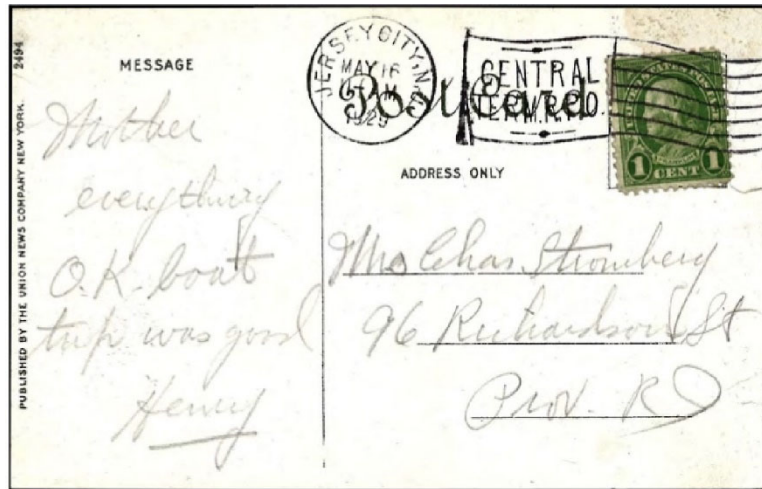 2494
PUBLISHED BY THE UNION NEWS COMPANY NEW YORK.
MESSAGE
Mother
everything
O.K. boat
trip was good
Henry
JERSEY CITY, N.J.
MAY 16
M
1929
Post Card
CENTRAL
TERM. R.P.O.
FRANKLIN
1 CENT 1
ADDRESS ONLY
Mrs Chas Stromberg
96 Richardson St
Prov. R I